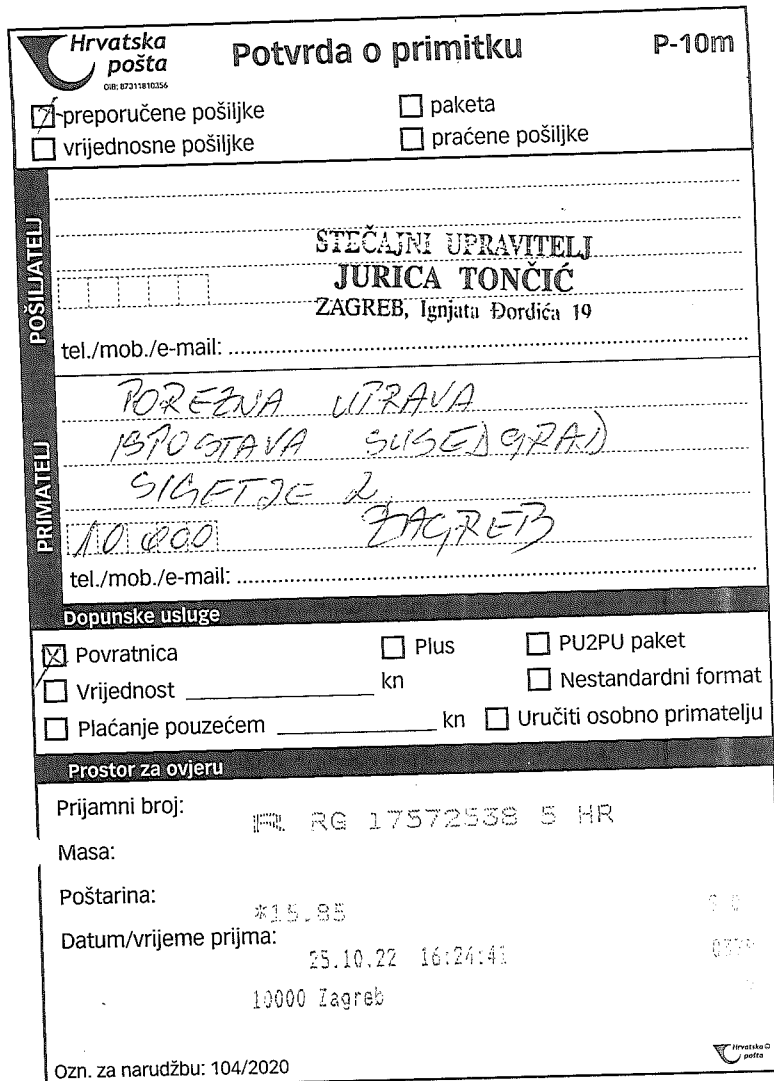 Hrvatska
pošta
OIB: 87311810356
Potvrda o primitku
P-10m
preporučene pošiljke
paketa
vrijednosne pošiljke
praćene pošiljke
POŠILJATELJ
STEČAJNI UPRAVITELJ
JURICA TONČIĆ
ZAGREB, Ignjata Đordića 19
tel./mob./e-mail:
PRIMATELJ
POREZNA UPRAVA
ISPOSTAVA SUSEDGRAD
SIGETJE 2
10000 ZAGREB
tel./mob./e-mail:
Dopunske usluge
Povratnica
Plus
PU2PU paket
Vrijednost kn
Nestandardni format
Plaćanje pouzećem kn
Uručiti osobno primatelju
Prostor za ovjeru
Prijamni broj: R RG 17572538 5 HR
Masa:
Poštarina: *15.85
Datum/vrijeme prijma: 25.10.22 16:24:41
10000 Zagreb
Ozn. za narudžbu: 104/2020
Hrvatska
pošta